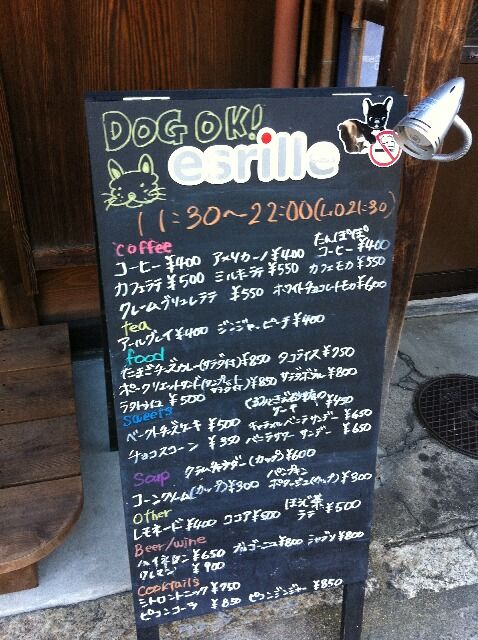 DOG OK!
esrille
11:30～22:00(L.O 21:30)
coffee
コーヒー ¥400 アメリカーノ ¥400 たんぽぽコーヒー ¥400
カフェラテ ¥500 ミルキーラテ ¥550 カフェモカ ¥550
クレームブリュレラテ ¥550 ホワイトチョコレートモカ ¥600
tea
アールグレイ ¥400 ジンジャーピーチ ¥400
food
たまごチーズカレー(サラダ付) ¥850 タコライス ¥750
¥850 ¥800
¥500
Sweets
ベークドチーズケーキ ¥500 ケーキ ¥450
キャラメルバニラサンデー ¥650
チョコスコーン ¥350 バニラサワーサンデー ¥650
Soup
クラムチャウダー(カップ) ¥600
コーンクリーム(カップ) ¥300 パンプキンポタージュ(カップ) ¥300
Other
レモネード ¥400 ココア ¥500 ほうじ茶ラテ ¥500
Beer/wine
ハイネケン ¥650 ブルゴーニュ ¥800 ¥800
¥900
Cocktails
シトロントニック ¥750
ピコンコーク ¥850 ピコンジンジャー ¥850